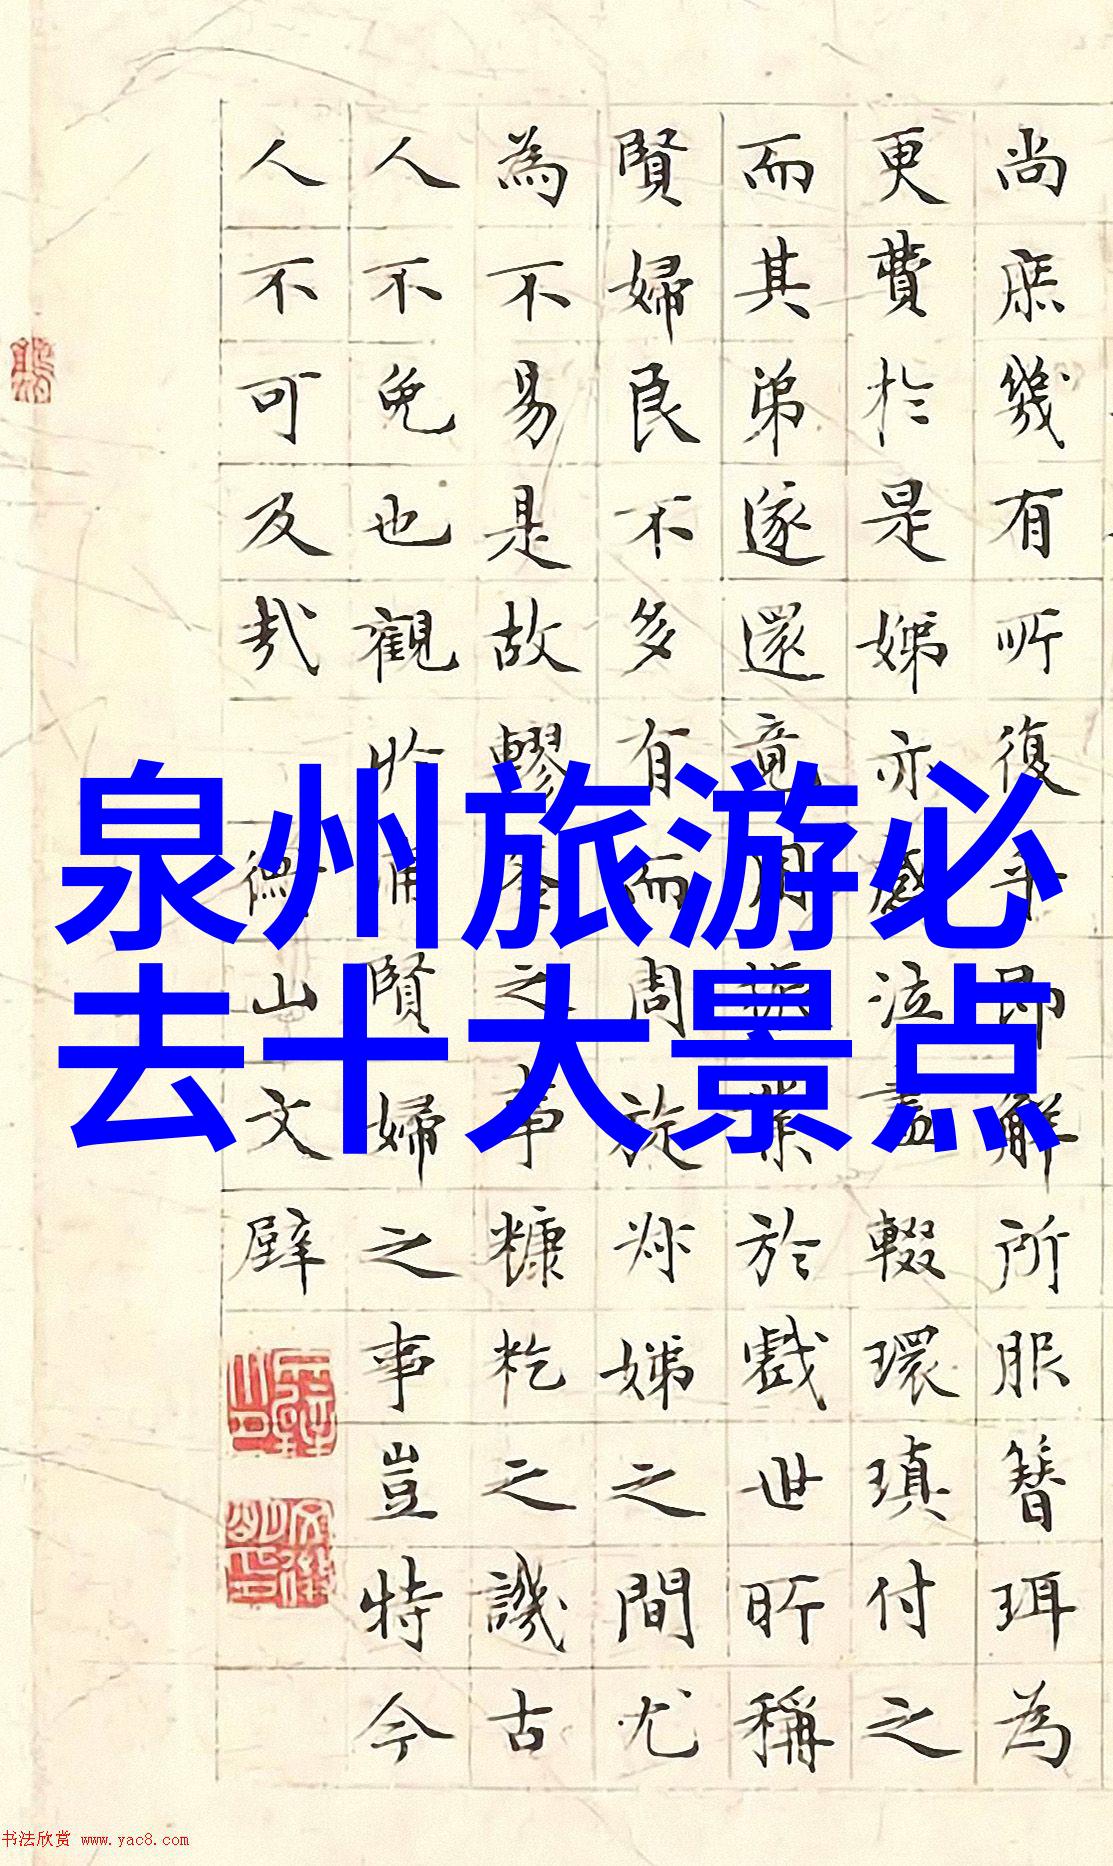 泉州旅游必
去十大景点
尚庶幾有所復乎即解所服簪珥為
更費於是娣亦感泣盡輟環瑱付之
而其弟遂還竟用振業於戲世所稱
賢婦良不多有而周旋姒娣之間尤
為不易是故釜之事糠籺之譏古
人不免也觀於賢婦之事豈特今
人不可及哉
衡山文璧
书法欣赏 www.yac8.com